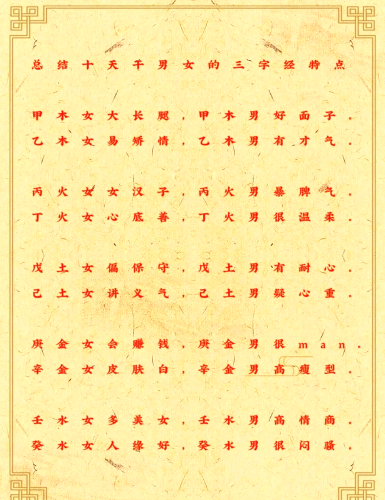 总结十天干男女的三字经特点
甲木女大长腿，甲木男好面子。
乙木女易矫情，乙木男有才气。
丙火女女汉子，丙火男暴脾气。
丁火女心底善，丁火男很温柔。
戊土女偏保守，戊土男有耐心。
己土女讲义气，己土男疑心重。
庚金女会赚钱，庚金男很man.
辛金女皮肤白，辛金男高瘦型。
壬水女多美女，壬水男高情商。
癸水女人缘好，癸水男很闷骚。